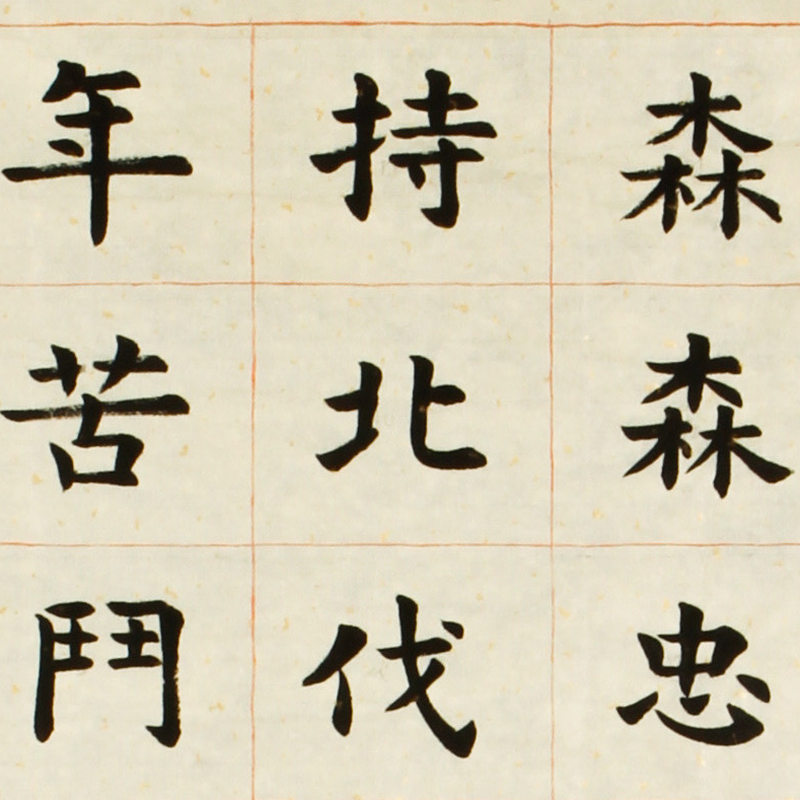 森森忠
持北伐
年苦鬥